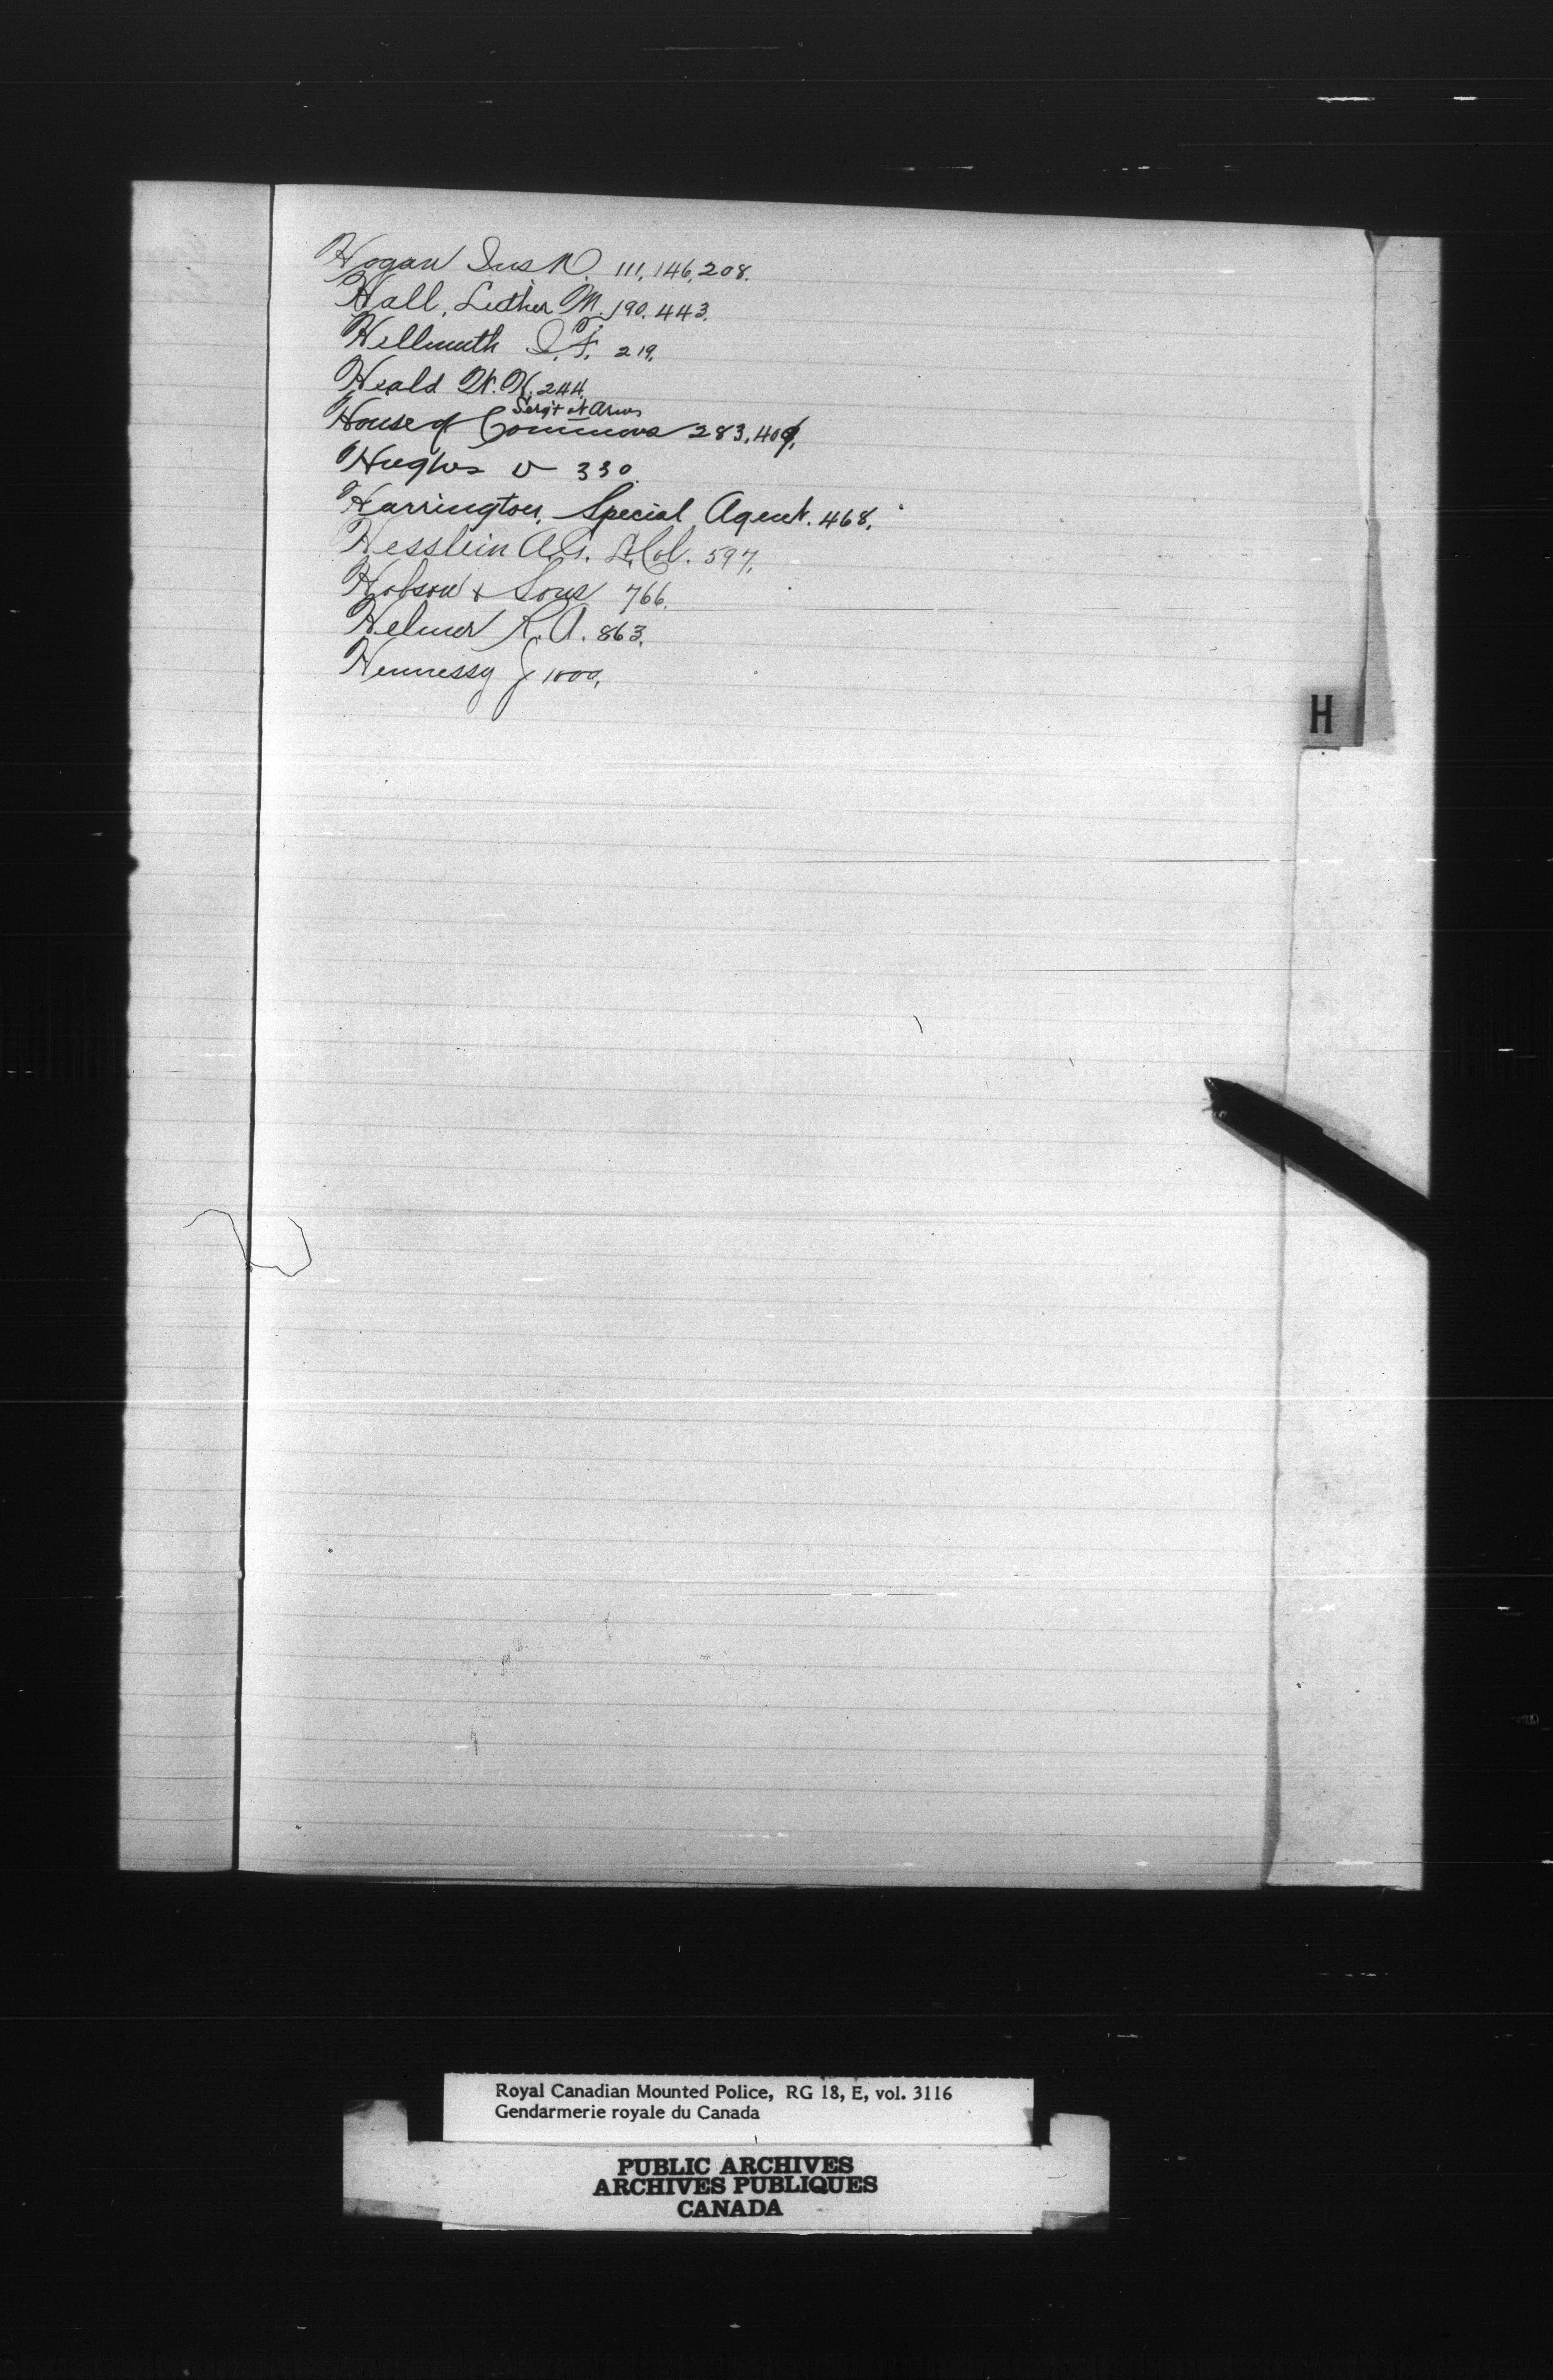 Hogan Jus N. 111, 146, 208.
Hall, Luther M. 190, 443.
Hellmuth I. F. 219.
Heald W. H. 244.
Serg't at Arms
House of Commons 283, 409.
Hughes v 330.
Harrington, Special Agent. 468.
Hesslein A.G. Lt Col. 597.
Hobson & Sons 766.
Helmer R. A. 863.
Hennessy J 1000.
H
Royal Canadian Mounted Police, RG 18, E, vol. 3116
Gendarmerie royale du Canada
PUBLIC ARCHIVES
ARCHIVES PUBLIQUES
CANADA